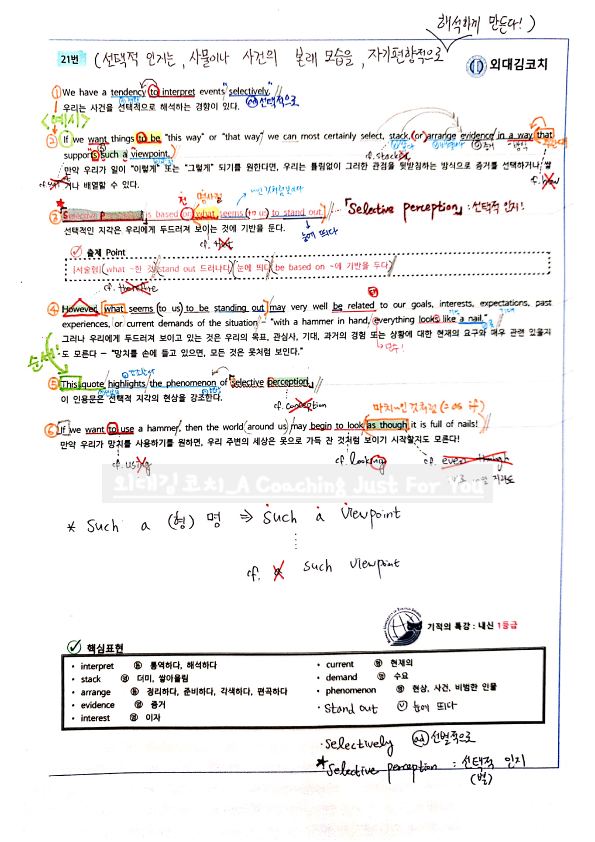 해석하게 만든다!)
21번 (선택적 인지는, 사물이나 사건의 본래 모습을, 자기편향적으로
외대김코치
① We have a tendency to interpret events "selectively."
우리는 사건을 선택적으로 해석하는 경향이 있다. ad 선택적으로
<예시>
② If we want things to be "this way" or "that way" we can most certainly select, stack, or arrange evidence in a way that
supports such a viewpoint.
cf. stack
만약 우리가 일이 "이렇게" 또는 "그렇게" 되기를 원한다면, 우리는 틀림없이 그러한 관점을 뒷받침하는 방식으로 증거를 선택하거나 쌓
거나 배열할 수 있다.
cf. how
전 명사절
③ Selective P is based on what seems (to us) to stand out. 「Selective perception」: 선택적 인지!
선택적인 지각은 우리에게 두드러져 보이는 것에 기반을 둔다. 눈에 띄다
cf. that
출제 Point
[서술형] what ~한 것 / stand out 드러나다, 눈에 띄다 / be based on ~에 기반을 두다
cf. therefore
④ However, what seems (to us) to be standing out may very well be related to our goals, interests, expectations, past
experiences, or current demands of the situation – "with a hammer in hand, everything looks like a nail."
그러나 우리에게 두드러져 보이고 있는 것은 우리의 목표, 관심사, 기대, 과거의 경험 또는 상황에 대한 현재의 요구와 매우 관련 있을지
도 모른다 – "망치를 손에 들고 있으면, 모든 것은 못처럼 보인다."
순서
⑤ This quote highlights the phenomenon of selective perception.
이 인용문은 선택적 지각의 현상을 강조한다. cf. conception
마치~인것처럼 (= as if)
⑥ If we want to use a hammer, then the world around us may begin to look as though it is full of nails!
만약 우리가 망치를 사용하기를 원하면, 우리 주변의 세상은 못으로 가득 찬 것처럼 보이기 시작할지도 모른다!
cf. using cf. looking cf. even though
외대김코치_A Coaching Just For You
* Such a (형) 명 ⇒ Such a viewpoint
cf. a such viewpoint
기적의 특강 : 내신 1등급
핵심표현
• interpret 동 통역하다, 해석하다
• stack 명 더미, 쌓아올림
• arrange 동 정리하다, 준비하다, 각색하다, 편곡하다
• evidence 명 증거
• interest 명 이자
• current 형 현재의
• demand 명 수요
• phenomenon 명 현상, 사건, 비범한 인물
• Stand out v 눈에 띄다
• Selectively ad 선별적으로
★ Selective perception : 선택적 인지
(별)